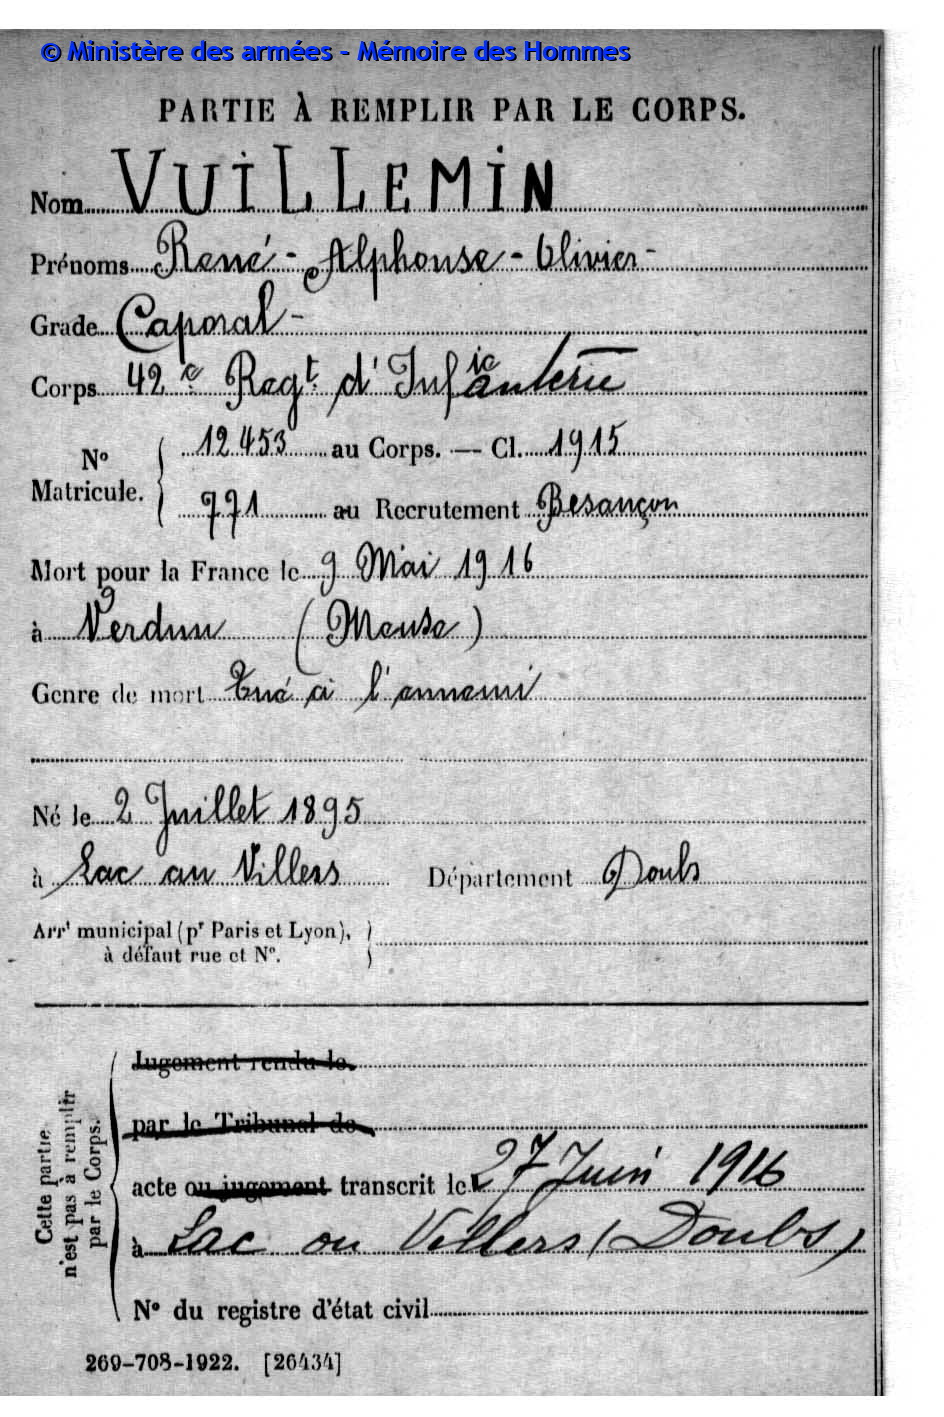 © Ministère des armées - Mémoire des Hommes
PARTIE À REMPLIR PAR LE CORPS.
Nom VUILLEMIN
Prénoms René - Alphonse - Olivier -
Grade Caporal -
Corps 42e Regt d'Infanterie
No Matricule. 12453 au Corps. — Cl. 1915
771 au Recrutement Besançon
Mort pour la France le 9 Mai 1916
à Verdun (Meuse)
Genre de mort Tué à l'ennemi
Né le 2 Juillet 1895
à Lac au Villers Département Doubs
Arrt municipal (pr Paris et Lyon),
à défaut rue et No.
Cette partie
n'est pas à remplir
par le Corps.
Jugement rendu le
par le Tribunal de
acte ou jugement transcrit le 27 Juin 1916
à Lac ou Villers (Doubs)
No du registre d'état civil
269-708-1922. [26434]